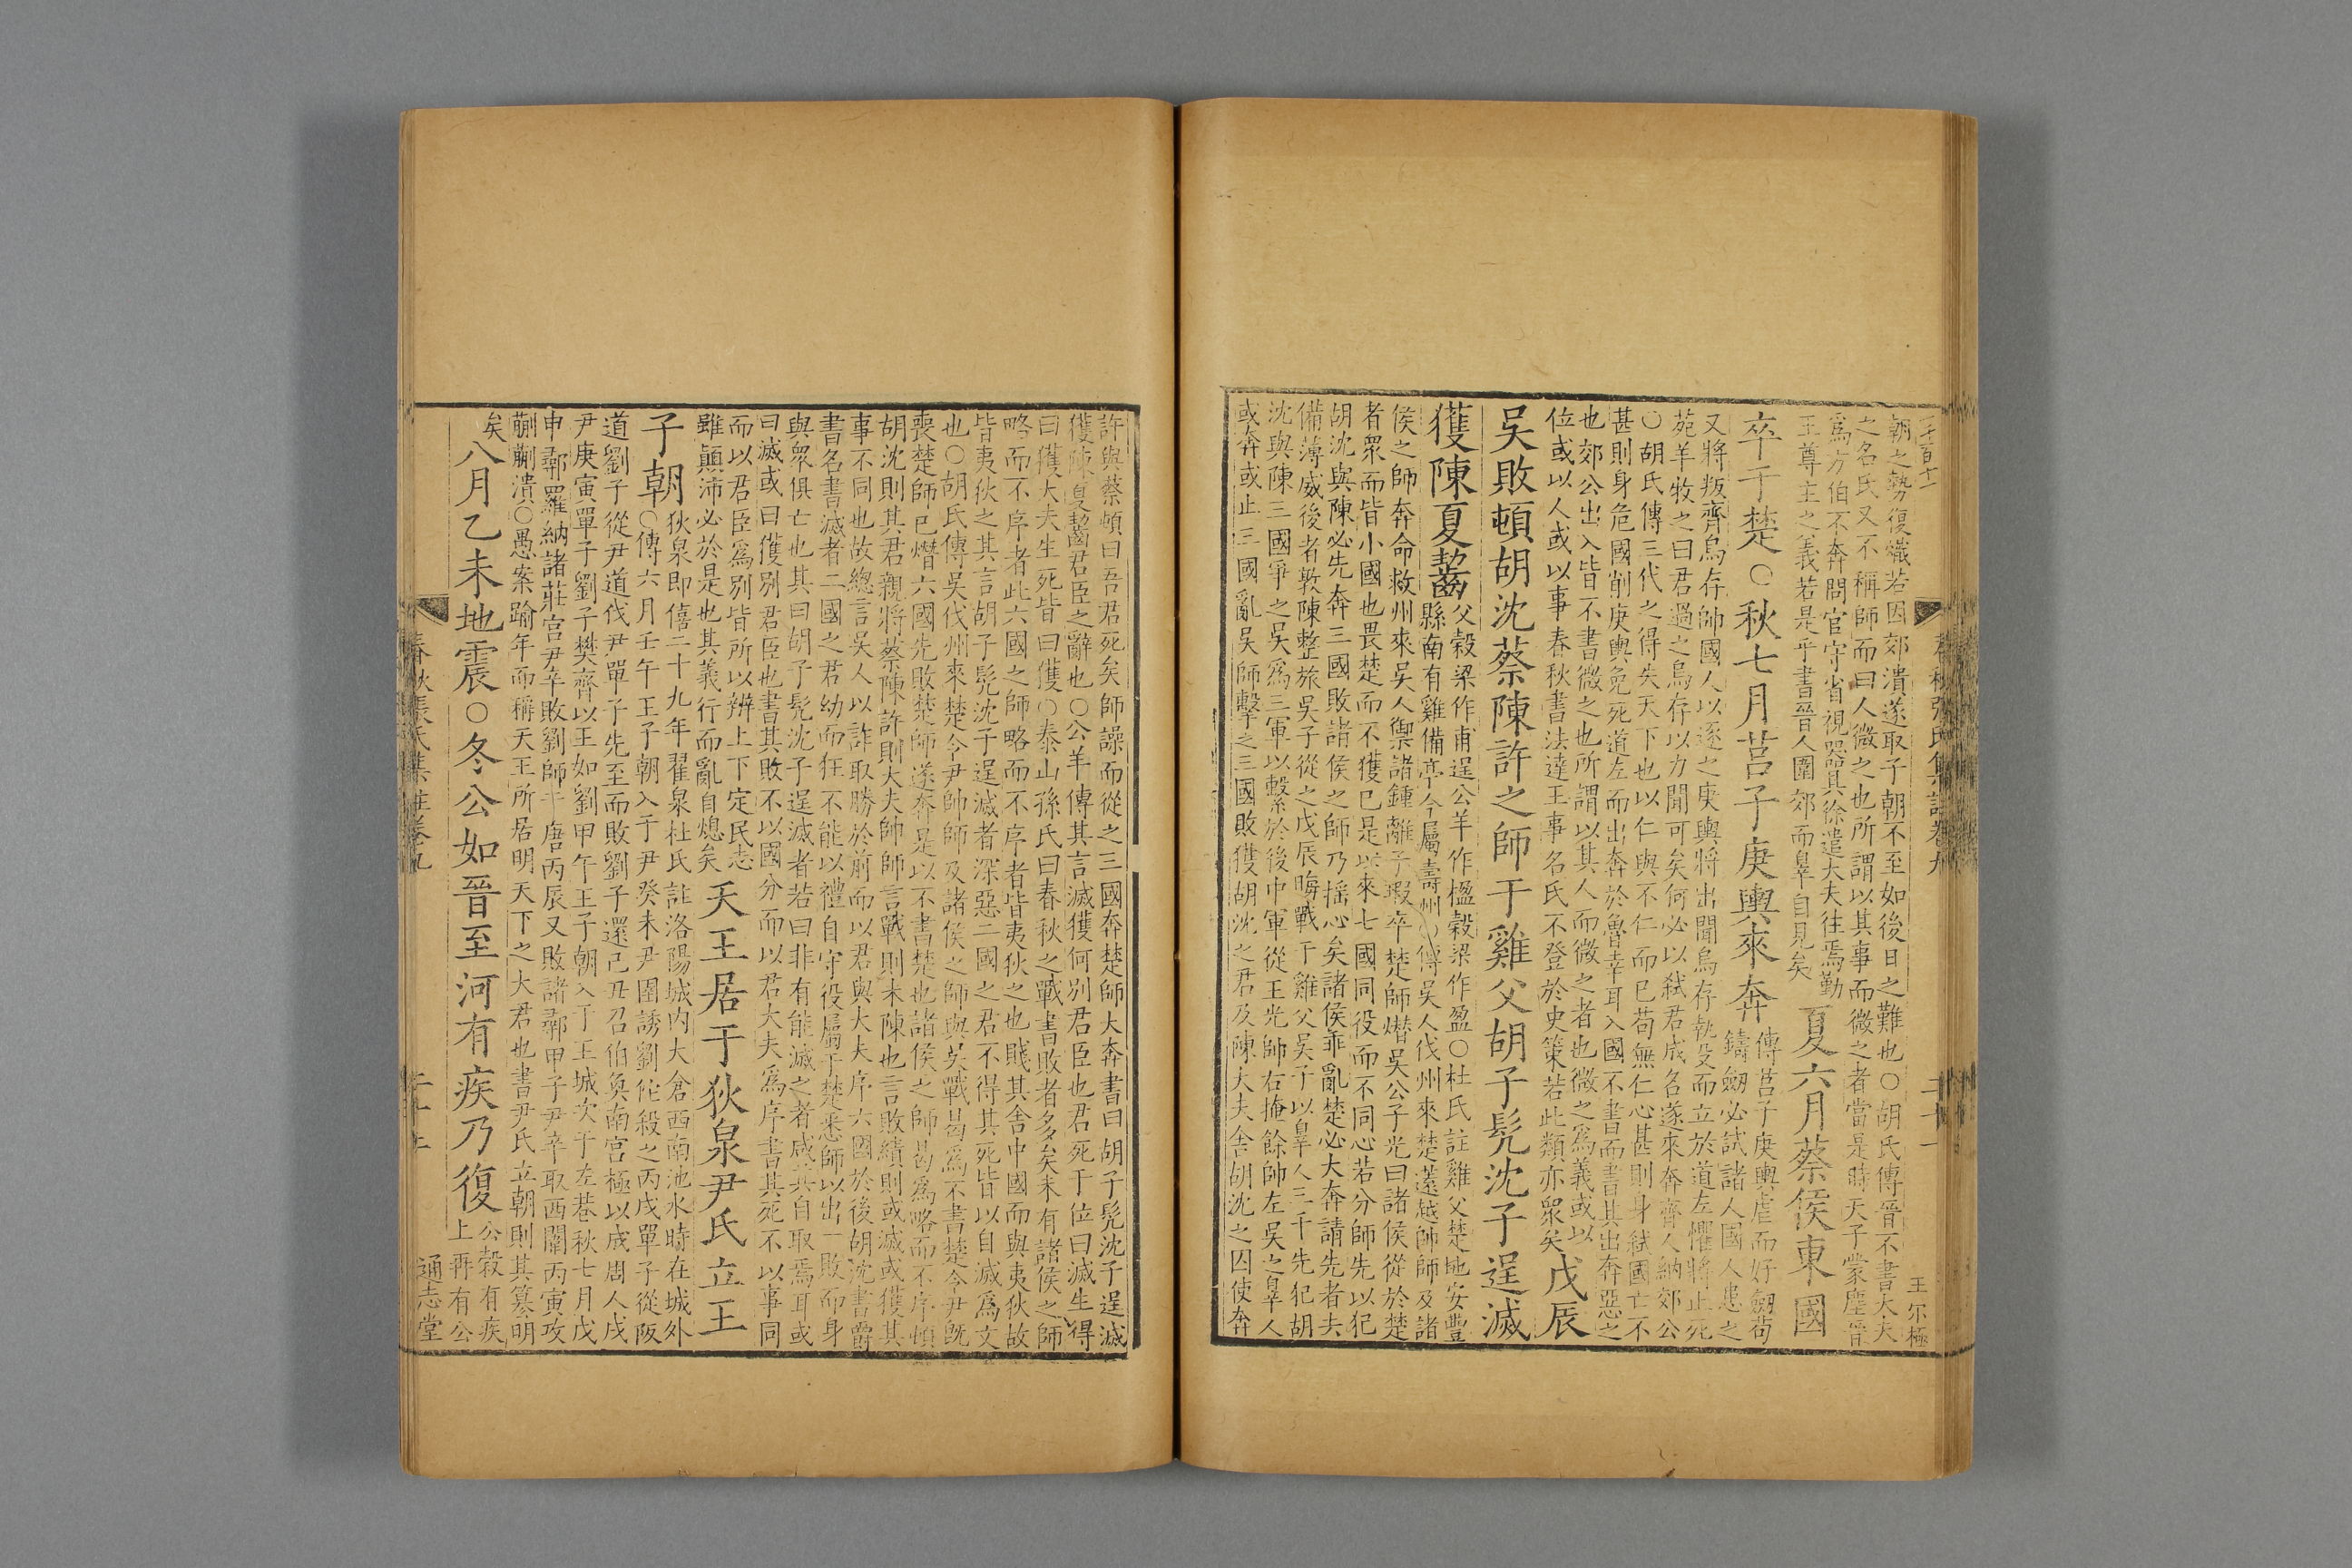 春秋張氏集註卷九
王尔極
朝之勢復熾若因郊潰遂取子朝不至如後日之難也○胡氏傳晉不書大夫
之名氏又不稱師而曰人微之也所謂以其事而微之者當是時天子蒙塵晉
爲方伯不奔問官守省視器具徐遣大夫往焉勤
王尊主之義若是乎書晉人圍郊而辠自見矣
夏六月蔡侯東國
卒于楚○秋七月莒子庚輿來奔
傳莒子庚輿虐而好劒苟
鑄劒必試諸人國人患之
又將叛齊烏存帥國人以逐之庚輿將出聞烏存執殳而立於道左懼將止死
苑羊牧之曰君過之烏存以力聞可矣何必以弒君成名遂來奔齊人納郊公
○胡氏傳三代之得失天下也以仁與不仁而已苟無仁心甚則身弒國亡不
甚則身危國削庚輿免死道左而出奔於魯幸耳入國不書而書其出奔惡之
也郊公出入皆不書微之也所謂以其人而微之者也微之爲義或以
位或以人或以事春秋書法達王事名氏不登於史策若此類亦衆矣
戊辰
吳敗頓胡沈蔡陳許之師于雞父胡子髡沈子逞滅
獲陳夏齧
父穀梁作甫逞公羊作楹穀梁作盈○杜氏註雞父楚地安豐
縣南有雞備亭今屬壽州○傳吳人伐州來楚薳越帥師及諸
侯之師奔命救州來吳人禦諸鍾離子瑕卒楚師熸吳公子光曰諸侯從於楚
者衆而皆小國也畏楚而不獲已是以來七國同役而不同心若分師先以犯
胡沈與陳必先奔三國敗諸侯之師乃搖心矣諸侯乖亂楚必大奔請先者去
備薄威後者敦陳整旅吳子從之戊辰晦戰于雞父吳子以辠人三千先犯胡
沈與陳三國爭之吳爲三軍以繫於後中軍從王光帥右掩餘帥左吳之辠人
或奔或止三國亂吳師擊之三國敗獲胡沈之君及陳大夫舍胡沈之囚使奔
許與蔡頓曰吾君死矣師譟而從之三國奔楚師大奔書曰胡子髡沈子逞滅
獲陳夏齧君臣之辭也○公羊傳其言滅獲何別君臣也君死于位曰滅生得
曰獲大夫生死皆曰獲○泰山孫氏曰春秋之戰書敗者多矣未有諸侯之師
略而不序者此六國之師略而不序者皆夷狄之也賤其舍中國而與夷狄故
皆夷狄之其言胡子髡沈子逞滅者深惡二國之君不得其死皆以自滅爲文
也○胡氏傳吳伐州來楚令尹帥師及諸侯之師與吳戰曷爲不書楚令尹旣
喪楚師已熸六國先敗楚師遂奔是以不書楚也諸侯之師曷爲略而不序頓
胡沈則其君親將蔡陳許則大夫帥師言戰則未陳也言敗績則或滅或獲其
事不同也故總言吳人以詐取勝於前而以君與大夫序六國於後胡沈書爵
書名書滅者二國之君幼而狂不能以禮自守役屬于楚悉師以出一敗而身
與衆俱亡也其曰胡子髡沈子逞滅者若曰非有能滅之者咸其自取焉耳或
曰滅或曰獲別君臣也書其敗不以國分而以君大夫爲序書其死不以事同
而以君臣爲別皆所以辨上下定民志
雖顚沛必於是也其義行而亂自熄矣
天王居于狄泉尹氏立王
子朝
狄泉即僖二十九年翟泉杜氏註洛陽城内大倉西南池水時在城外
○傳六月壬午王子朝入于尹癸未尹圉誘劉佗殺之丙戌單子從阪
道劉子從尹道伐尹單子先至而敗劉子還己丑召伯奐南宮極以成周人戍
尹庚寅單子劉子樊齊以王如劉甲午王子朝入于王城次于左巷秋七月戊
申鄩羅納諸莊宮尹辛敗劉師于唐丙辰又敗諸鄩甲子尹辛取西闈丙寅攻
蒯蒯潰○愚案踰年而稱天王所居明天下之大君也書尹氏立朝則其篡明
矣
八月乙未地震○冬公如晉至河有疾乃復
公穀有疾
上再有公
通志堂